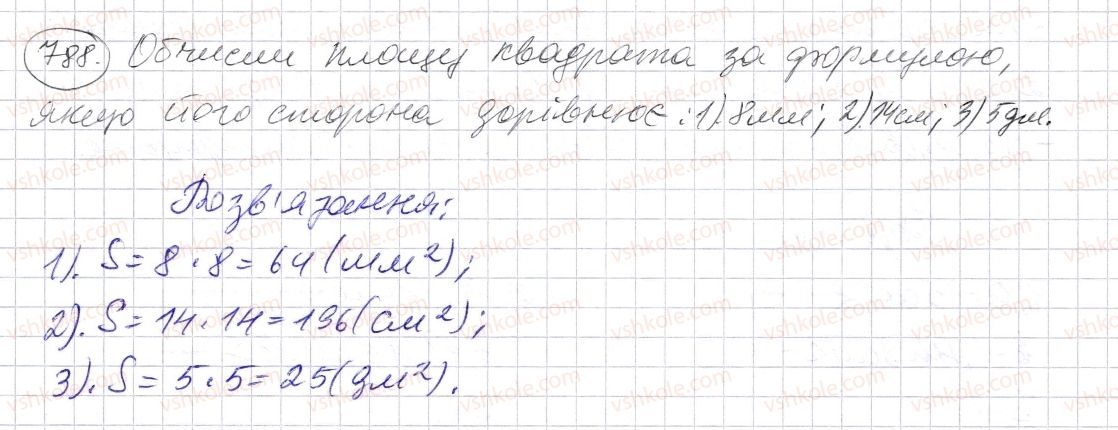 788. Обчисли площу квадрата за формулою,
якщо його сторона дорівнює: 1). 8мм; 2). 14см; 3) 5дм.
Розв'язання:
1). S = 8 · 8 = 64 (мм²);
2). S = 14 · 14 = 196 (см²);
3). S = 5 · 5 = 25 (дм²).